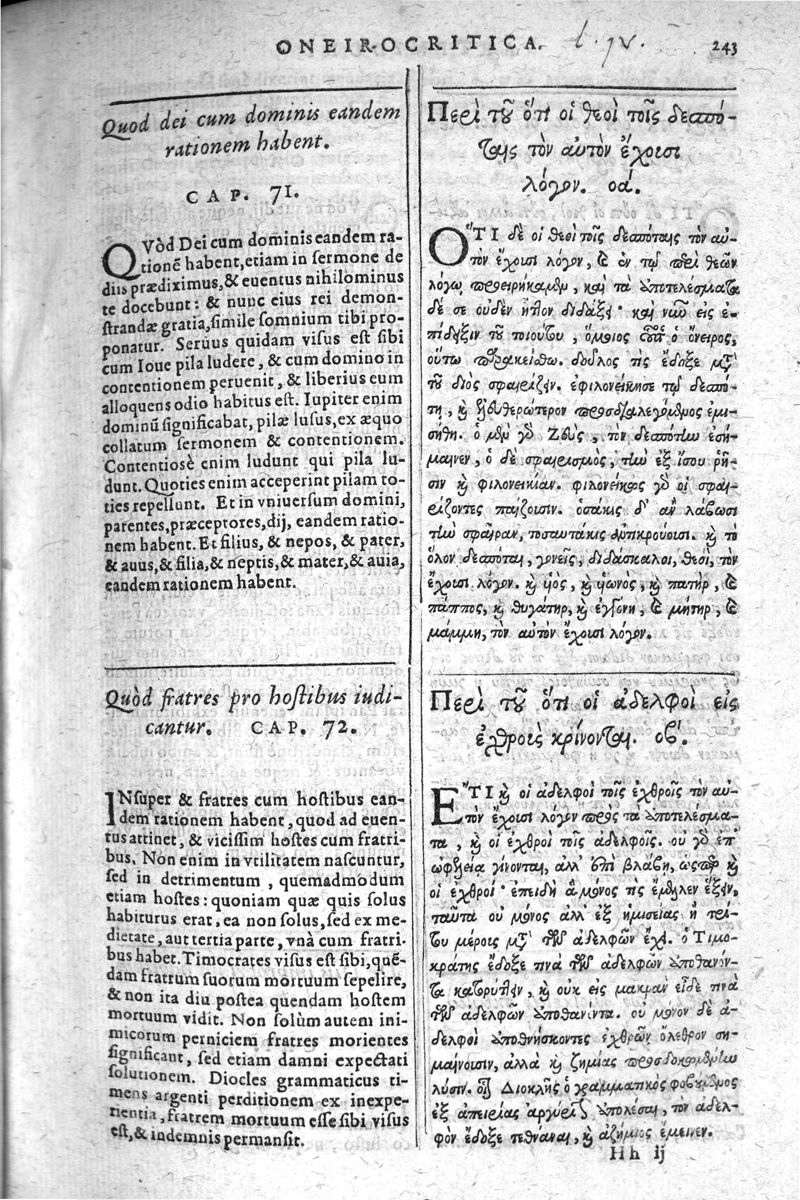 ONEIROCRITICA. l. IV.
243
Quod dei cum dominis eandem
rationem habent.
CAP. 71.
QVòd Dei cum dominis eandem ra-
tionẽ habent, etiam in sermone de
diis prædiximus, & euentus nihilominus
te docebunt: & nunc eius rei demon-
strandæ gratia, simile somnium tibi pro-
ponatur. Seruus quidam visus est sibi
cum Ioue pila ludere, & cum domino in
contentionem peruenit, & liberius eum
alloquens odio habitus est. Iupiter enim
dominũ significabat, pilæ lusus, ex æquo
collatum sermonem & contentionem.
Contentiosè enim ludunt qui pila lu-
dunt. Quoties enim acceperint pilam to-
ties repellunt. Et in vniuersum domini,
parentes, præceptores, dij, eandem ratio-
nem habent. Et filius, & nepos, & pater,
& auus, & filia, & neptis, & mater, & auia,
eandem rationem habent.
Quòd fratres pro hostibus iudi-
cantur. CAP. 72.
INsuper & fratres cum hostibus ean-
dem rationem habent, quod ad euen-
tus attinet, & vicissim hostes cum fratri-
bus. Non enim in vtilitatem nascuntur,
sed in detrimentum, quemadmodum
etiam hostes: quoniam quæ quis solus
habiturus erat, ea non solus, sed ex me-
dietate, aut tertia parte, vnà cum fratri-
bus habet. Timocrates visus est sibi, quẽ-
dam fratrum suorum mortuum sepelire,
& non ita diu postea quendam hostem
mortuum vidit. Non solùm autem ini-
micorum perniciem fratres morientes
significant, sed etiam damni expectati
solutionem. Diocles grammaticus ti-
mens argenti perditionem ex inexpe-
rientia, fratrem mortuum esse sibi visus
est, & indemnis permansit.
Περὶ τοῦ ὅτι οἱ θεοὶ τοῖς δεσπό-
ταις τὸν αὐτὸν ἔχουσι
λόγον. οα΄.
ΟΤΙ δὲ οἱ θεοὶ τοῖς δεσπόταις τὸν αὐ-
τὸν ἔχουσι λόγον, καὶ ἐν τῷ περὶ θεῶν
λόγῳ προειρήκαμεν, καὶ τὰ ἀποτελέσματα
δέ σε οὐδὲν ἧττον διδάξει· καὶ νῦν εἰς ἐ-
πίδειξιν τοῦ τοιούτου, ὅμοιος αὐτῷ ὁ ὄνειρος,
οὕτω προκείσθω. δοῦλος τὶς ἔδοξε μετὰ
τοῦ διὸς σφαιρίζειν. ἐφιλονείκησε τῷ δεσπό-
τῃ, καὶ ἐλευθερώτερον προσδιαλεγόμενος ἐμι-
σήθη. ὁ μὲν γὰρ Ζεὺς, τὸν δεσπότην ἐσή-
μαινεν, ὁ δὲ σφαιρισμὸς, τὴν ἐξ ἴσου ῥῆ-
σιν καὶ φιλονεικίαν. φιλονείκως γὰρ οἱ σφαι-
ρίζοντες παίζουσιν. ὁσάκις δ' ἂν λάβωσι
τὴν σφαῖραν, τοσαυτάκις ἀντικρούουσι. καὶ τὸ
ὅλον δεσπόται, γονεῖς, διδάσκαλοι, θεοὶ, τὸν
ἔχουσι λόγον. καὶ υἱὸς, καὶ υἱωνὸς, καὶ πατὴρ, καὶ
πάππος, καὶ θυγάτηρ, καὶ ἐγγόνη, καὶ μήτηρ, καὶ
μάμμη, τὸν αὐτὸν ἔχουσι λόγον.
Περὶ τοῦ ὅτι οἱ ἀδελφοὶ εἰς
ἐχθροὺς κρίνονται. οβ΄.
ΕΤΙ καὶ οἱ ἀδελφοὶ τοῖς ἐχθροῖς τὸν αὐ-
τὸν ἔχουσι λόγον πρὸς τὰ ἀποτελέσμα-
τα, καὶ οἱ ἐχθροὶ τοῖς ἀδελφοῖς. οὐ γὰρ ἐπ'
ὠφελείᾳ γίνονται, ἀλλ' ἐπὶ βλάβῃ, ὥσπερ καὶ
οἱ ἐχθροί· ἐπειδὴ ἃ μόνος τὶς ἔμελλεν ἕξειν,
ταῦτα οὐ μόνος ἀλλ' ἐξ ἡμισείας ἢ τρί-
του μέρους μετὰ τῶν ἀδελφῶν ἔχει. ὁ Τιμο-
κράτης ἔδοξε τινὰ τῶν ἀδελφῶν ἀποθανόν-
τα κατορύττειν, καὶ οὐκ εἰς μακρὰν εἶδε τινὰ
τῶν ἀδελφῶν ἀποθανόντα. οὐ μόνον δὲ ἀ-
δελφοὶ ἀποθνήσκοντες ἐχθρῶν ὄλεθρον ση-
μαίνουσιν, ἀλλὰ καὶ ζημίας προσδοκωμένην
λύσιν. οἷον Διοκλῆς ὁ γραμματικὸς φοβούμενος
ἐξ ἀπειρίας ἀργύριον ἀπολέσαι, τὸν ἀδελ-
φὸν ἔδοξε τεθνάναι, καὶ ἀζήμιος ἔμεινεν.
Hh ij